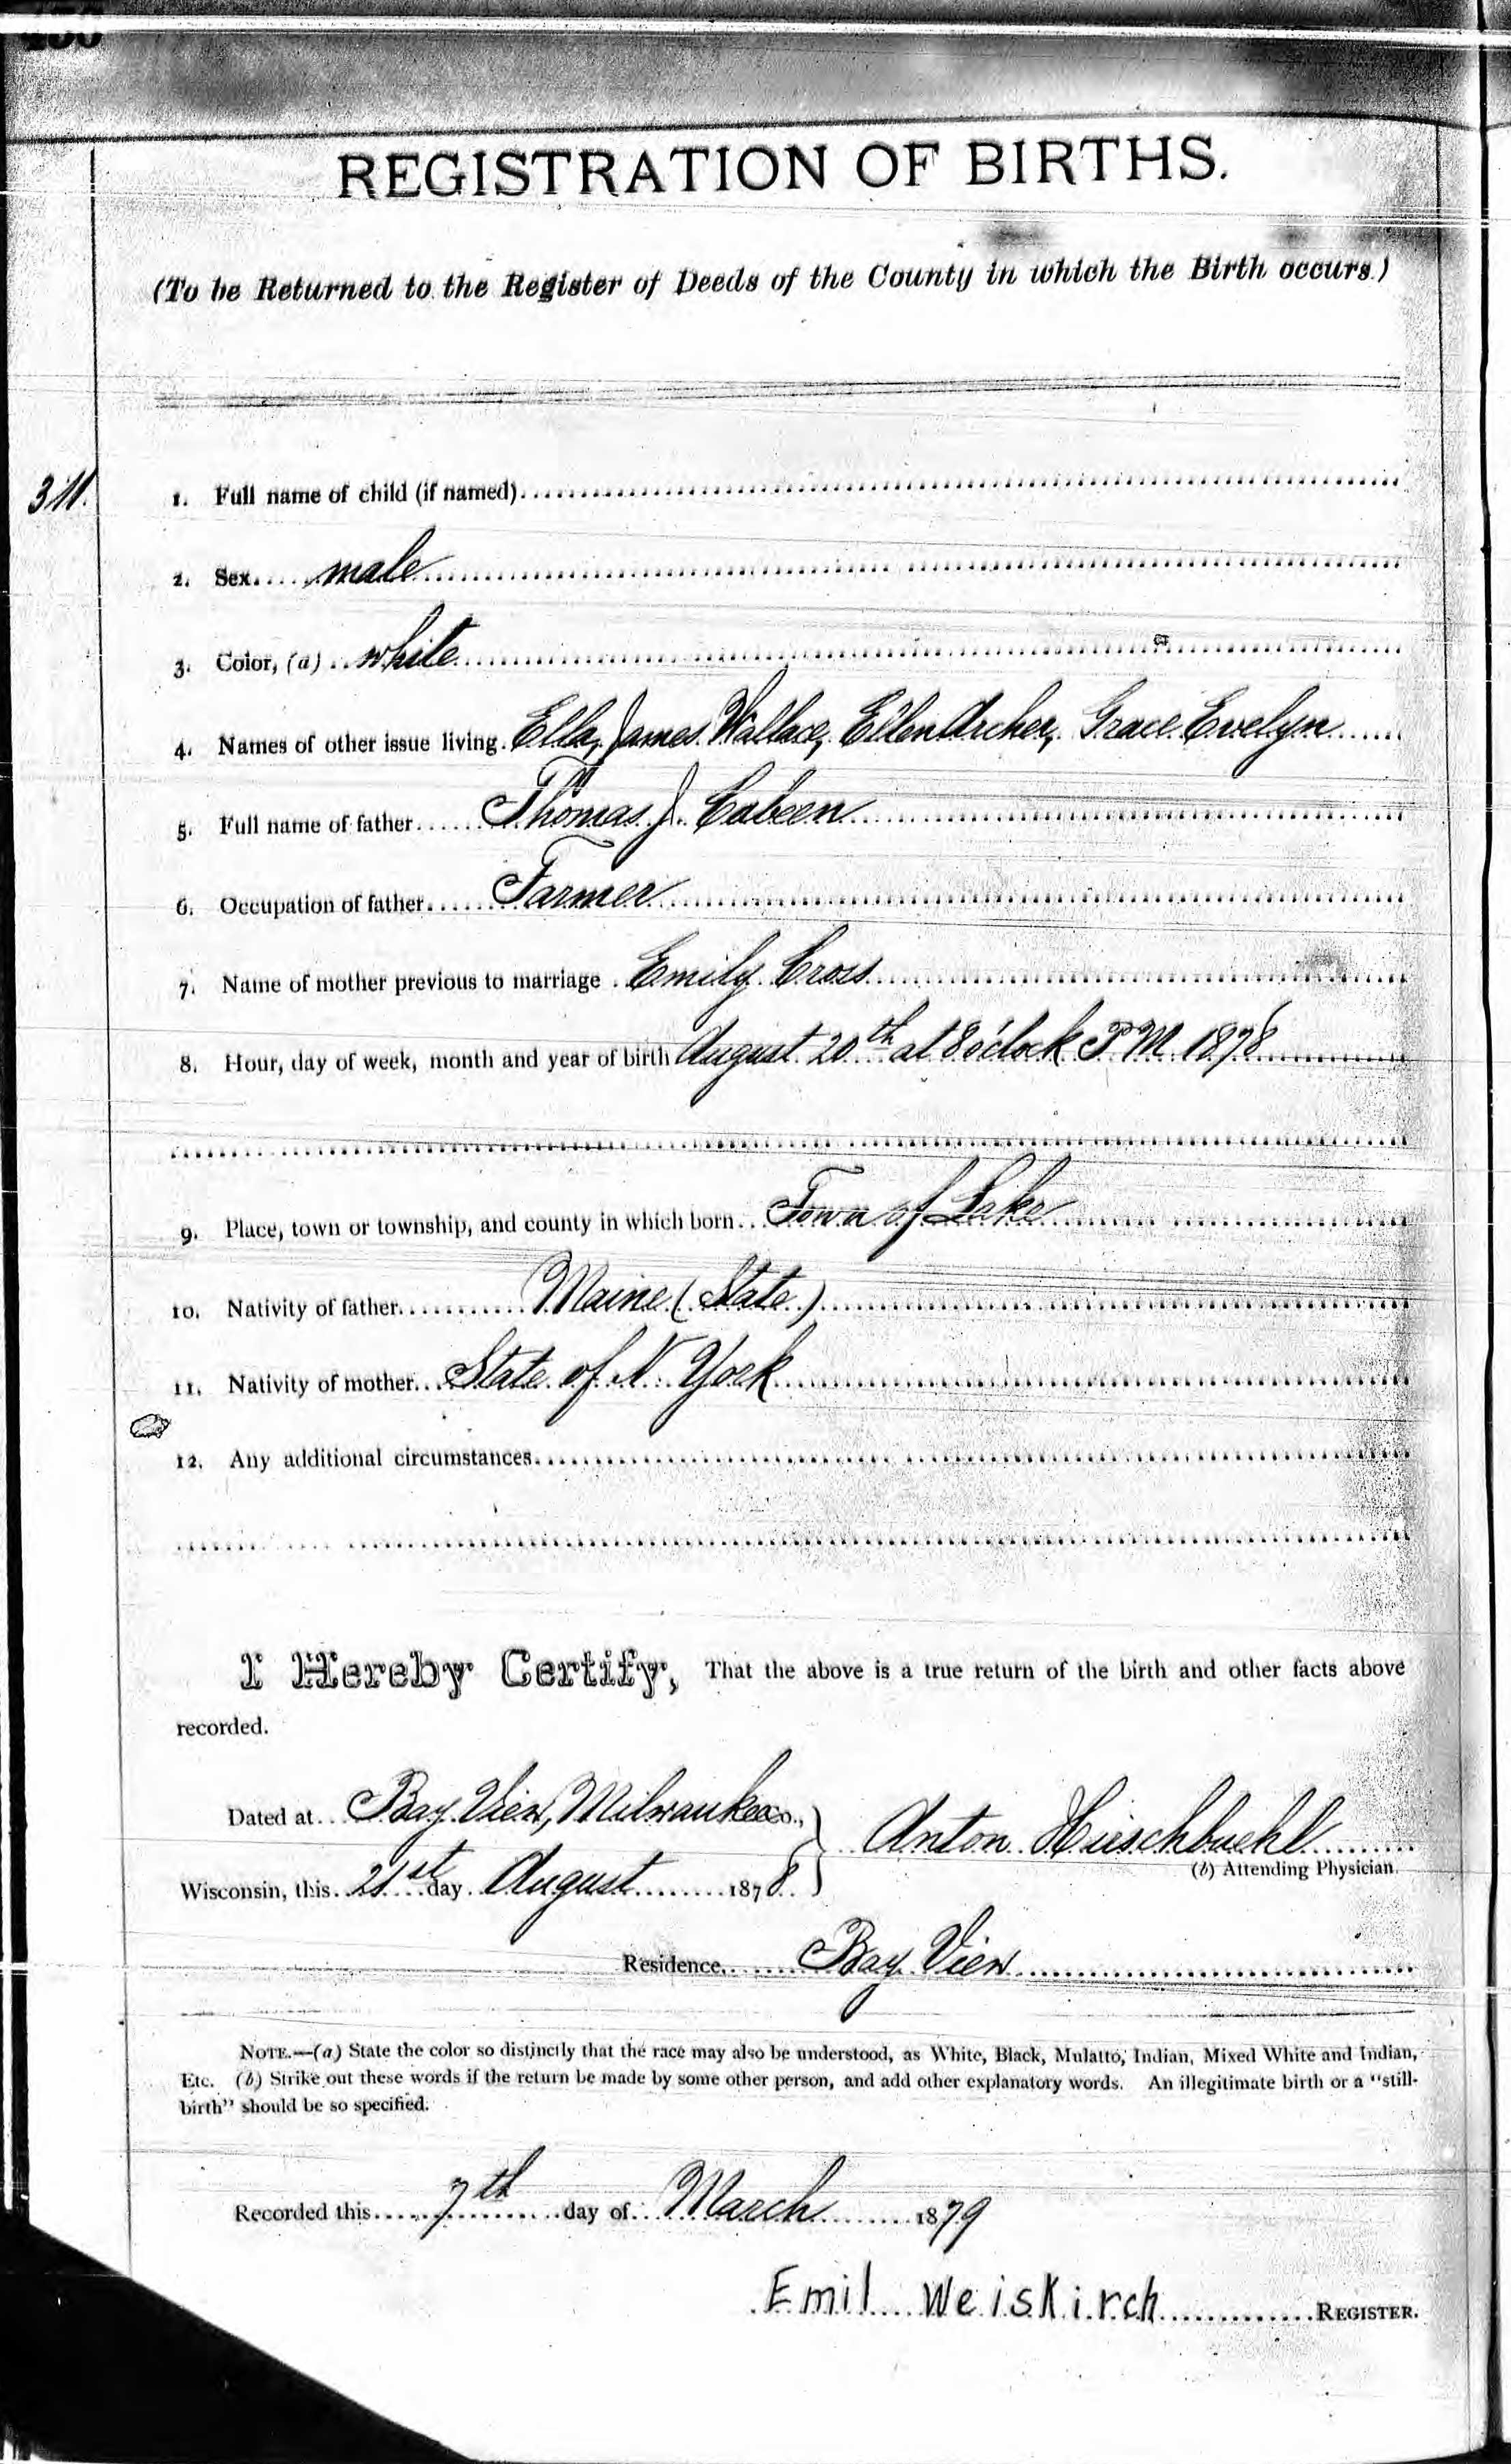 REGISTRATION OF BIRTHS.
(To be Returned to the Register of Deeds of the County in which the Birth occurs.)
311.
1. Full name of child (if named)
2. Sex male
3. Color, (a) white
4. Names of other issue living Ella, James Wallace, Ellen Archer, Grace Evelyn
5. Full name of father Thomas J. Cabeen
6. Occupation of father Farmer
7. Name of mother previous to marriage Emily Cross
8. Hour, day of week, month and year of birth August 20th at 8 o'clock P.M. 1878
9. Place, town or township, and county in which born Town of Lake
10. Nativity of father Maine (State)
11. Nativity of mother State of N. York
12. Any additional circumstances
I Hereby Certify, That the above is a true return of the birth and other facts above
recorded.
Dated at Bay View, Milwaukee Co., Anton Hirschbuehl
(b) Attending Physician.
Wisconsin, this 21st day August 1878.
Residence Bay View
NOTE.—(a) State the color so distinctly that the race may also be understood, as White, Black, Mulatto, Indian, Mixed White and Indian,
Etc. (b) Strike out these words if the return be made by some other person, and add other explanatory words. An illegitimate birth or a "still-
birth" should be so specified.
Recorded this 7th day of March 1879
Emil Weiskirch REGISTER.